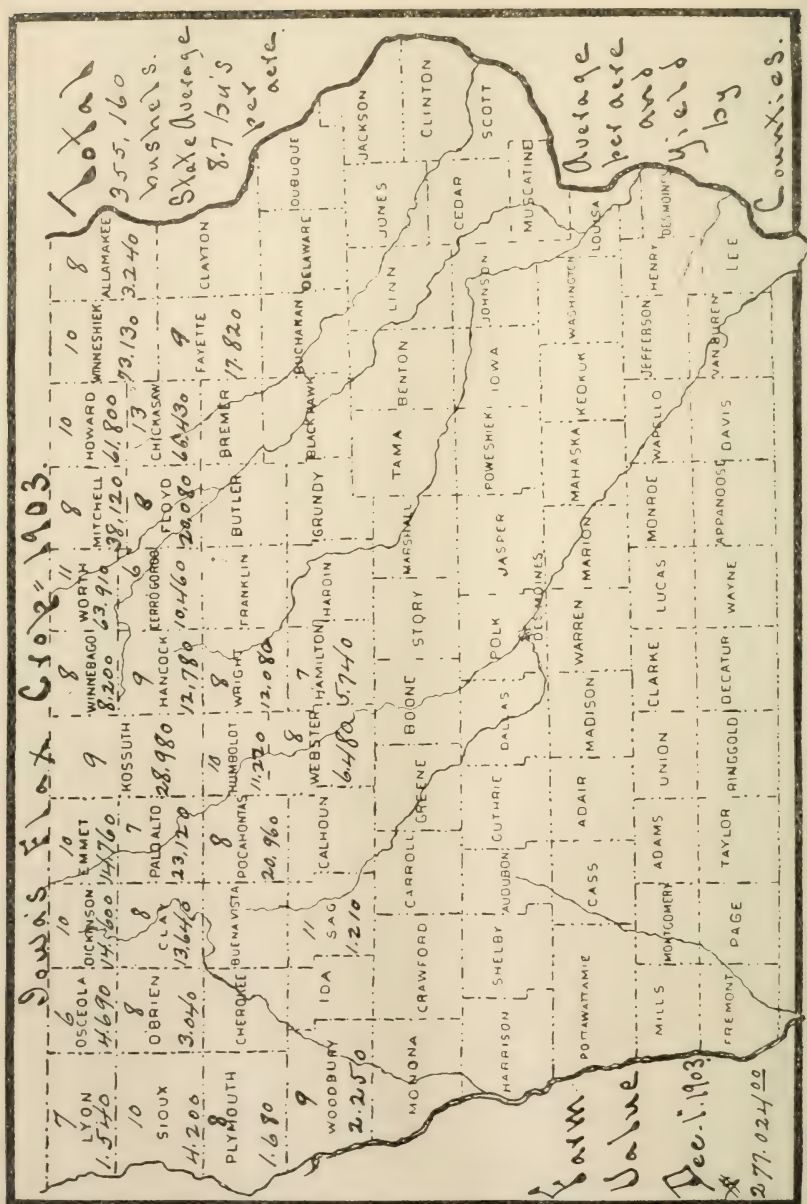 Iowa's Flax Crop" 1903.
Total
355,160
bushels.
State Average
8.7 bu's
per
acre.
7
LYON
1.540
6
OSCEOLA
4.690
10
DICKINSON
14.600
10
EMMET
14.760
9
KOSSUTH
28.980
8
WINNEBAGO
8.200
11
WORTH
63,910
8
MITCHELL
38,120
10
HOWARD
61,800
10
WINNESHIEK
73,130
8
ALLAMAKEE
3.240
10
SIOUX
4.200
8
O'BRIEN
3.040
8
CLAY
13,640
7
PALO ALTO
23,120
9
HANCOCK
12,780
6
CERRO GORDO
10,460
8
FLOYD
20,080
13
CHICKASAW
66,430
9
FAYETTE
17.820
CLAYTON
8
PLYMOUTH
1.680
CHEROKEE
BUENA VISTA
8
POCAHONTAS
20,960
10
HUMBOLDT
11,220
8
WRIGHT
12.080
FRANKLIN
BUTLER
BREMER
9
WOODBURY
2.250
IDA
11
SAG
1.210
CALHOUN
8
WEBSTER
6.480
7
HAMILTON
5.740
HARDIN
GRUNDY
BLACKHAWK
BUCHANAN
DELAWARE
DUBUQUE
MONONA
CRAWFORD
CARROLL
GREENE
BOONE
STORY
MARSHALL
TAMA
BENTON
LINN
JONES
JACKSON
CLINTON
HARRISON
SHELBY
AUDUBON
GUTHRIE
DALLAS
POLK
DES MOINES
JASPER
POWESHIEK
IOWA
JOHNSON
CEDAR
SCOTT
MUSCATINE
POTTAWATTAMIE
CASS
ADAIR
MADISON
WARREN
MARION
MAHASKA
KEOKUK
WASHINGTON
LOUISA
MILLS
MONTGOMERY
ADAMS
UNION
CLARKE
LUCAS
MONROE
WAPELLO
JEFFERSON
HENRY
DES MOINES
FREMONT
PAGE
TAYLOR
RINGGOLD
DECATUR
WAYNE
APPANOOSE
DAVIS
VAN BUREN
LEE
Farm
Value
Dec. 1. 1903.
$
277.024 00
Average
per acre
and
Yield
by
Counties.